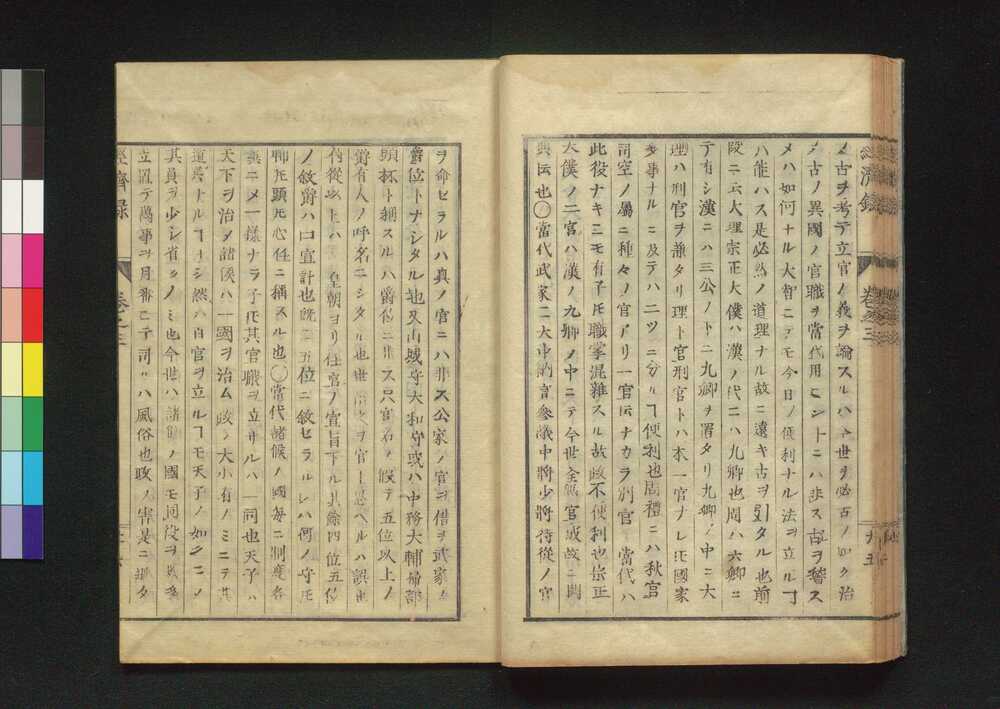 メ古ヲ考テ立官ノ義ヲ論スルハ今世ヲ必古ノ如ク治
メ古ノ異國ノ官職ヲ當代用ヒントニハ非ス古ヲ稽ス
メハ如何ナル大智ニテモ今日ノ便利ナル法ヲ立ルヿ
ハ能ハス是必然ノ道理ナル故ニ遠キ古ヲ引タル也前
段ニ云大理宗正大僕ハ漢ノ代ニハ九卿也周ハ六卿ニ
テ有シ漢ニハ三公ノ下ニ九卿ヲ置タリ九卿ノ中ニ大
理ハ刑官ヲ兼タリ理ト官刑官トハ本一官ナレ𪜈國家
多事ナルニ及テハ二ツニ分ルヿ便利也周禮ニハ秋官
司空ノ屬ニ種々ノ官アリ一官𪜈ナカラ別官 當代ハ
此役ナキニモ有子𪜈職掌混雜スル故政不便利也宗正
大僕ノ二官ハ漢ノ九卿ノ中ニテ今世全無官職故ニ闕
典𪜈也〇當代武家ニ大中納言參議中將少將侍從ノ官
濟録
巻之三
十五
ヲ命セラルハ真ノ官ニハ非ス公家ノ官ヲ借テ武家ノ
爵位トナシタル也又山城守大和守或ハ中務大輔掃部
頭抔ト稱スルハ爵位ニ非ス只官名ノ假テ五位以上ノ
爵有人ノ呼名ニシタル也世 是ヲ官ト思ヘルハ誤也
侍從以上ハ 皇朝ヨリ任官ノ宣旨下ル其餘四位五位
ノ敘爵ハ口宣計也既ニ五位ニ敘セラルレハ何ノ守𪜈
何ノ頭𪜈心任ニ稱スル也〇當代諸候ノ國每ニ制度各
異ニメ一樣ナラ子𪜈其官職ヲ立サルハ一同也天子ハ
天下ヲ治メ諸侯ハ一國ヲ治ム政ノ大小有ノミニテ其
道ハ異ナルヿナシ然ハ百官ヲ立ルヿモ天子ノ如クニメ
其員ヲ少シ省クノミ也今世ハ諸侯ノ國モ同役ヲ以多
立置テ萬事ヲ月番ニテ司ルハ風俗也政ノ害是ニ過タ
經濟録
巻之三